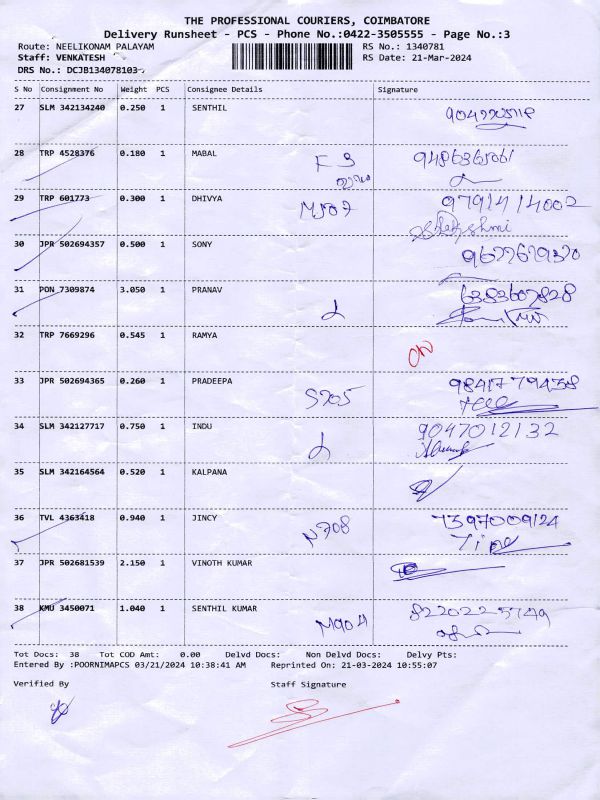 THE PROFESSIONAL COURIERS, COIMBATORE
Delivery Runsheet - PCS - Phone No.:0422-3505555 - Page No.:3
Route: NEELIKONAM PALAYAM RS No.: 1340781
Staff: VENKATESH RS Date: 21-Mar-2024
DRS No.: DCJB134078103
S No Consignment No Weight PCS Consignee Details Signature
27 SLM 342134240 0.250 1 SENTHIL
28 TRP 4528376 0.180 1 MABAL F 3 9486365061
29 TRP 601773 0.300 1 DHIVYA M507 9791414002
30 JPR 502694357 0.500 1 SONY 9677679370
31 PON 7309874 3.050 1 PRANAV 6383607828
32 TRP 7669296 0.545 1 RAMYA
33 JPR 502694365 0.260 1 PRADEEPA S205 9841779438
34 SLM 342127717 0.750 1 INDU 9047012132
35 SLM 342164564 0.520 1 KALPANA
36 TVL 4363418 0.940 1 JINCY N708 7397009124
37 JPR 502681539 2.150 1 VINOTH KUMAR
38 KMU 3450071 1.040 1 SENTHIL KUMAR M904 8220225749
Tot Docs: 38 Tot COD Amt: 0.00 Delvd Docs: Non Delvd Docs: Delvy Pts:
Entered By :POORNIMAPCS 03/21/2024 10:38:41 AM Reprinted On: 21-03-2024 10:55:07
Verified By Staff Signature